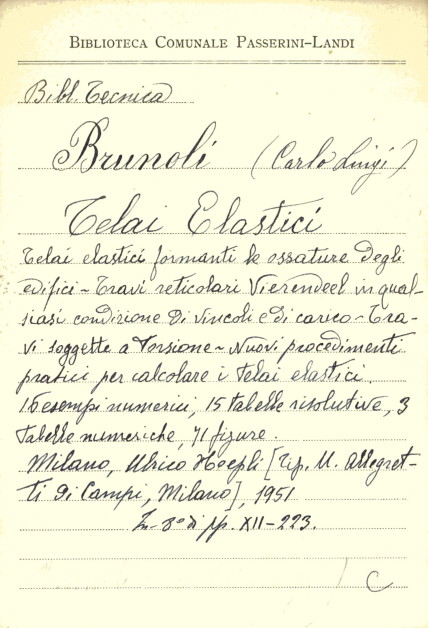 Biblioteca Comunale Passerini-Landi
Bibl. Tecnica
Brunoli (Carlo Luigi)
Telai Elastici
Telai elastici formanti le ossature degli
edifici - Travi reticolari Vierendeel in qual-
siasi condizione di vincoli e di carico - Tra-
vi soggette a torsione - Nuovi procedimenti
pratici per calcolare i telai elastici.
16 esempi numerici, 15 tabelle risolutive, 3
tabelle numeriche, 71 figure.
Milano, Ulrico Hoepli [Tip. U. Allegret-
ti di Campi, Milano], 1951
In-8° di pp. XII-223.
C